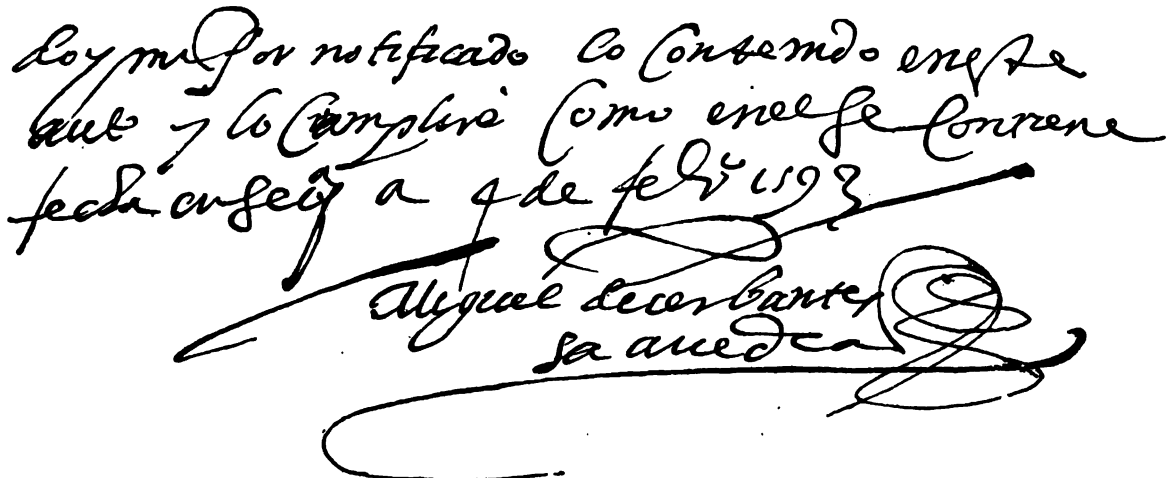 doyme por notificado lo contenido eneste
auto y lo Cumplire Como enel se Contiene
fecha en seuª a 4 de febrº 1593
Miguel decerbantes
saauedra